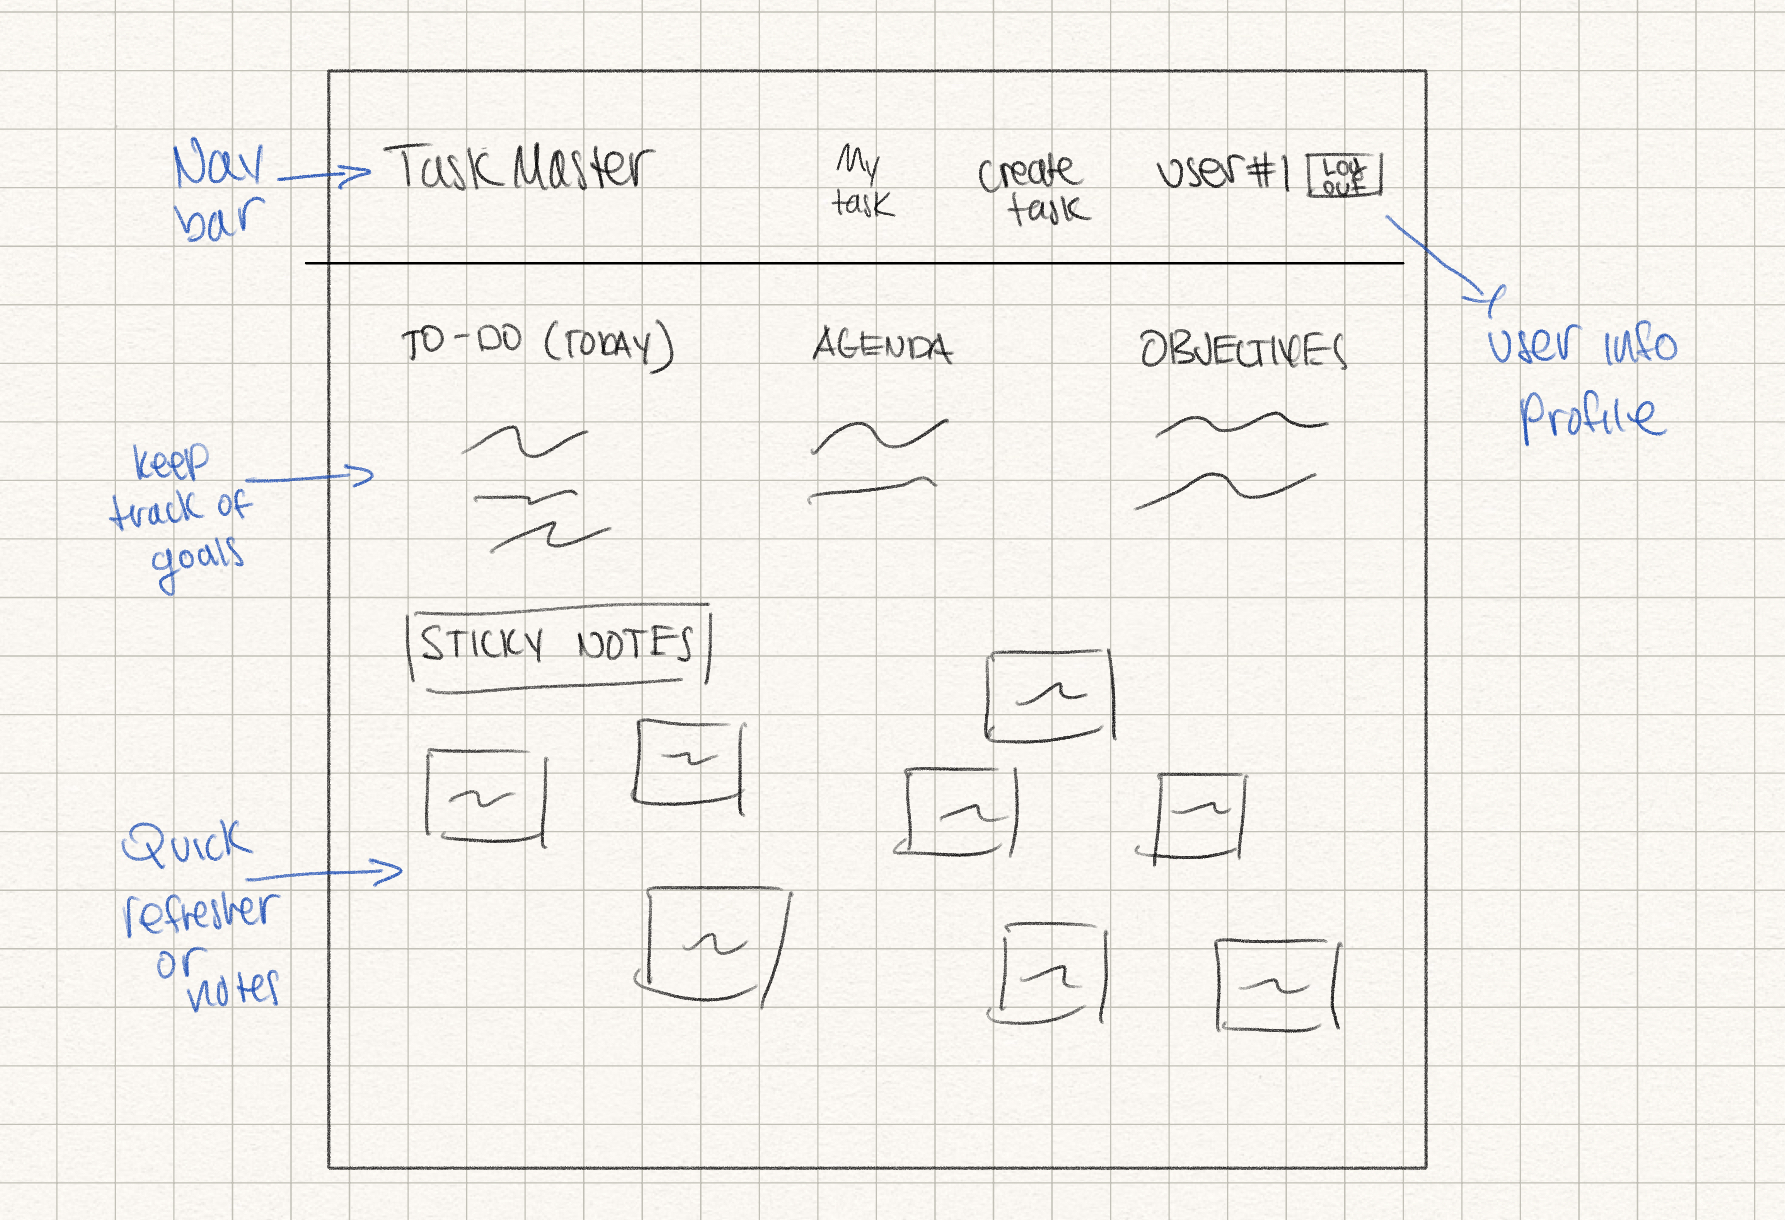 Nav
bar
Task Master
My
task
create
task
user #1
LOG
OUT
user info
profile
TO-DO (TODAY)
AGENDA
OBJECTIVES
keep
track of
goals
STICKY NOTES
Quick
refresher
or
notes